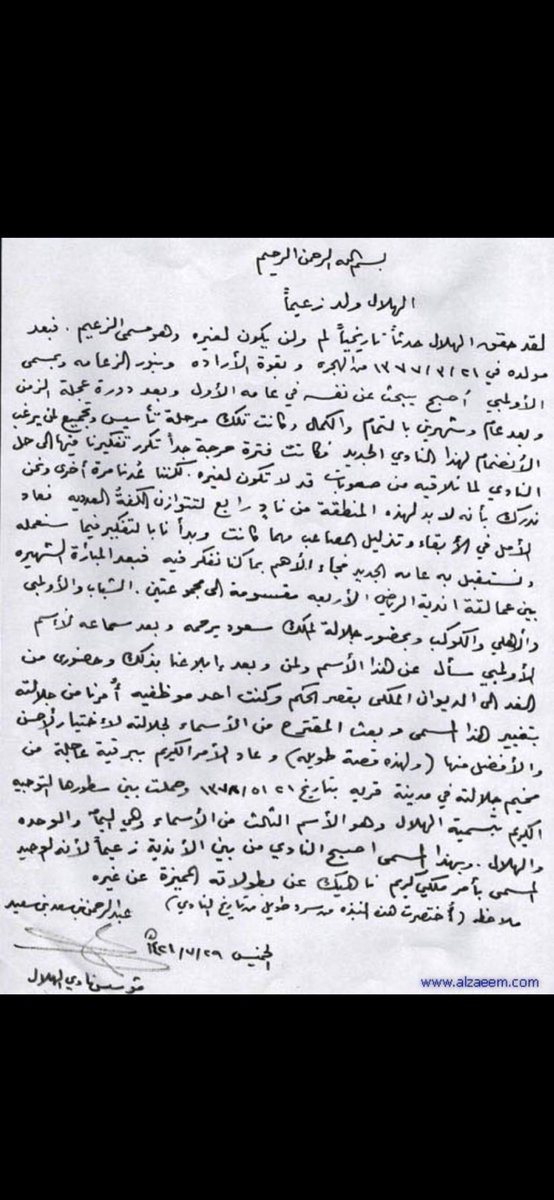 بسم الله الرحمن الرحيم
الهلال ولد زعيماً
لقد حقق الهلال حدثاً تاريخياً لم ولن يكون لغيره وهو مسمى الزعيم . فبعد
مولده في ١٣٧٧/٣/٢١ من الهجره و بقوة الأراده وبنور الزعامه وبمسمى
الأولمبي أصبح يبحث عن نفسه في عامه الأول وبعد دورة عجلة الزمن
وبعد عام وشهرين بالتمام والكمال وكانت تلك مرحلة تأسيس وتجميع لمن يرغب
الأنضمام لهذا النادي الجديد فكانت فترة حرجة جداً تكرر تفكيرنا فيها إلى حل
النادي لما نلاقيه من صعوبات قد لا تكون لغيره . لكننا عُدنا مرة أخرى ونحن
ندرك بأنه لابد لهذه المنطقة من نادٍ رابع لتتوازن الكفة العدديه فعاد
الأمل في الأبقاء وتذليل المصاعب مهما كانت وبدأنا بالتفكير فيما سنعمله
ونستقبل به عامه الجديد فجاء الأهم بما كنا نفكر فيه فبعد المباراة الشهيره
بين عمالقة اندية الرياض الأربعه مقسومة إلى مجموعتين . الشباب والأولمبي
والأهلي والكوكب وبحضور جلالة الملك سعود يرحمه وبعد سماعه لأسم
الأولمبي سأل عن هذا الأسم ولمن وبعد إبلاغنا بذلك وحضوري من
الغد الى الديوان الملكي بقصر الحكم وكنت احد موظفيه أُمرنا من جلالته
بتغيير هذا المسمى وبعث المقترح من الأسماء لجلالته لإختيار الأحسن
والأفضل منها (ولهذه قصة طويله) وعاد الأمر الكريم ببرقية عاجلة من
مخيم جلالته في مدينة قريه بتاريخ ١٣٧٨/٥/٢١ وحملت بين سطورها التوجيه
الكريم بتسمية الهلال وهو الأسم الثالث من الأسماء وهي اليمامه والوحده
والهلال . وبهذا المسمى اصبح النادي من بين الأندية زعيماً لأنه الوحيد
المسمى بأمر ملكي كريم ناهيك عن بطولاته المميزة عن غيره
ملاحظه (أختصرت هذه النبذه من سرد طويل من تاريخ النادي) عبدالرحمن بن سعد بن سعيد
الخميس ١٤٢١/٧/٢٩ هـ
مؤسس نادي الهلال
www.alzaeem.com